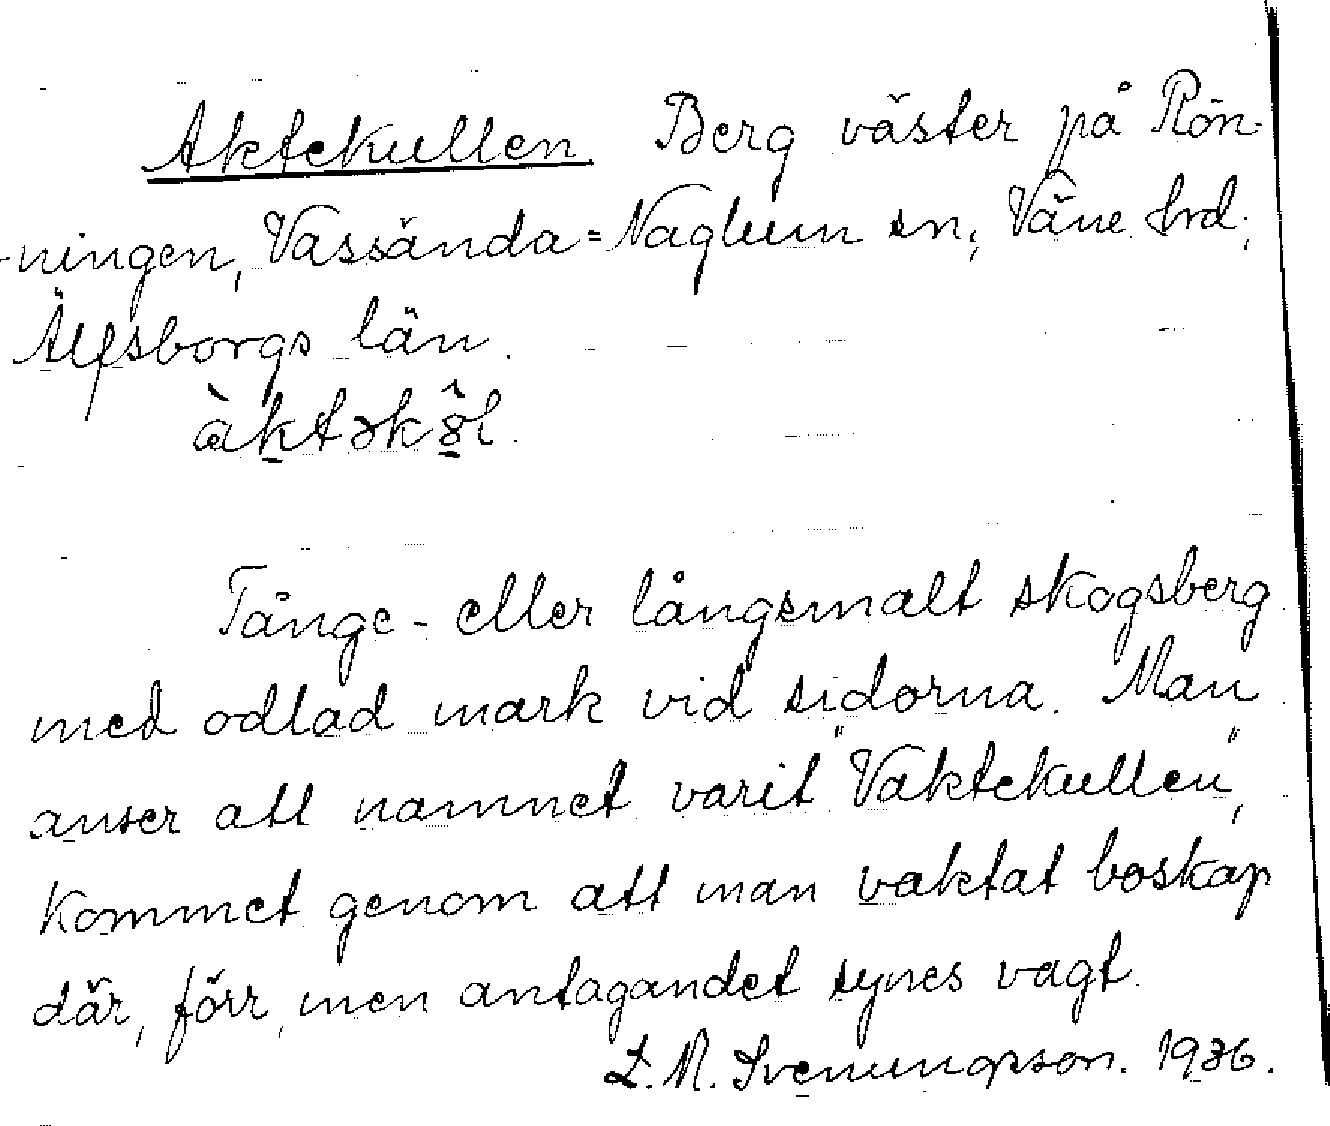 Aktekullen. Berg väster på Rön-
ningen, Vassända=Naglum sn; Väne hrd;
Älfsborgs län.
àktəkôl.
Tånge- eller långsmalt skogsberg
med odlad mark vid sidorna. Man
anser att namnet varit "Vaktekullen",
kommet genom att man vaktat boskap
där, förr, men antagandet synes vagt.
L. M. Svenungsson. 1936.